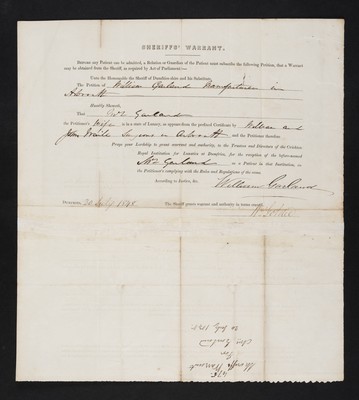 SHERIFFS' WARRANT.
BEFORE any Patient can be admitted, a Relation or Guardian of the Patient must subscribe the following Petition, that a Warrant
may be obtained from the Sheriff, as required by Act of Parliament:—
Unto the Honourable the Sheriff of Dumfries-shire and his Substitute,
The Petition of William Garland Manufacturer in
Arbroath
Humbly Sheweth,
That Mrs Garland
the Petitioner's Wife is in a state of Lunacy, as appears from the prefixed Certificate by William
John Surgeons in Arbroath and the Petitioner therefore
Prays your Lordship to grant warrant and authority, to the Trustees and Directors of the Crichton
Royal Institution for Lunatics at Dumfries, for the reception of the before-named
Mrs Garland as a Patient in that Institution, on
the Petitioner's complying with the Rules and Regulations of the same.
According to Justice, &c.
William Garland
DUMFRIES, 20 July 1848. The Sheriff grants warrant and authority in terms craved.
Sheriffs Warrant
For
Mrs Garland
20 July 1848